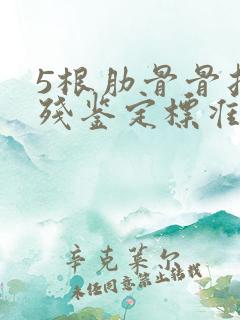 5根肋骨骨
残鉴定标准
辛克莱尔
未经同意禁止转载